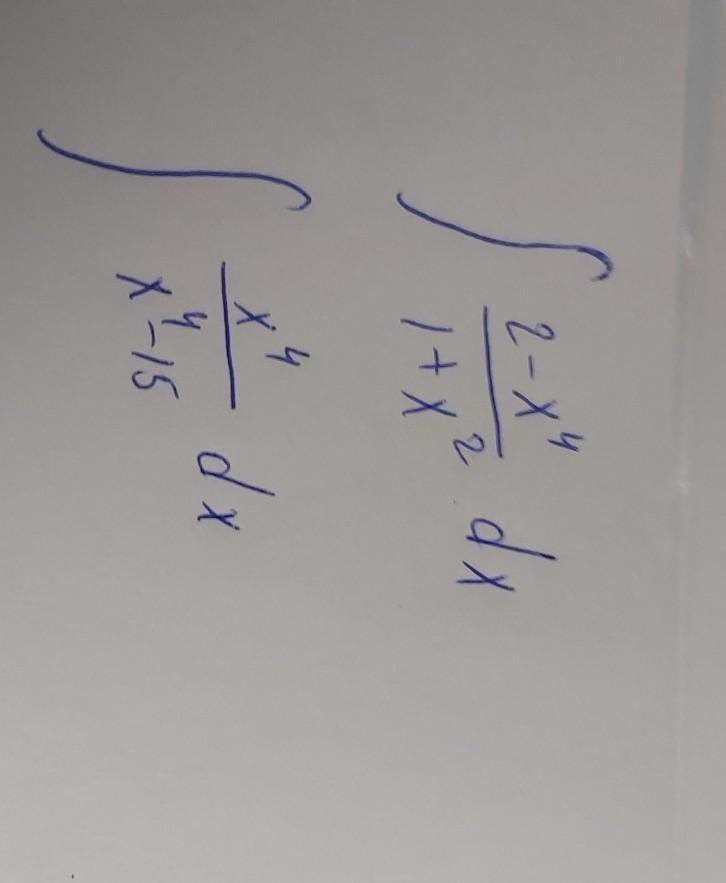 ∫ (2-x⁴)/(1+x²) dx
∫ x⁴/(x⁴-15) dx